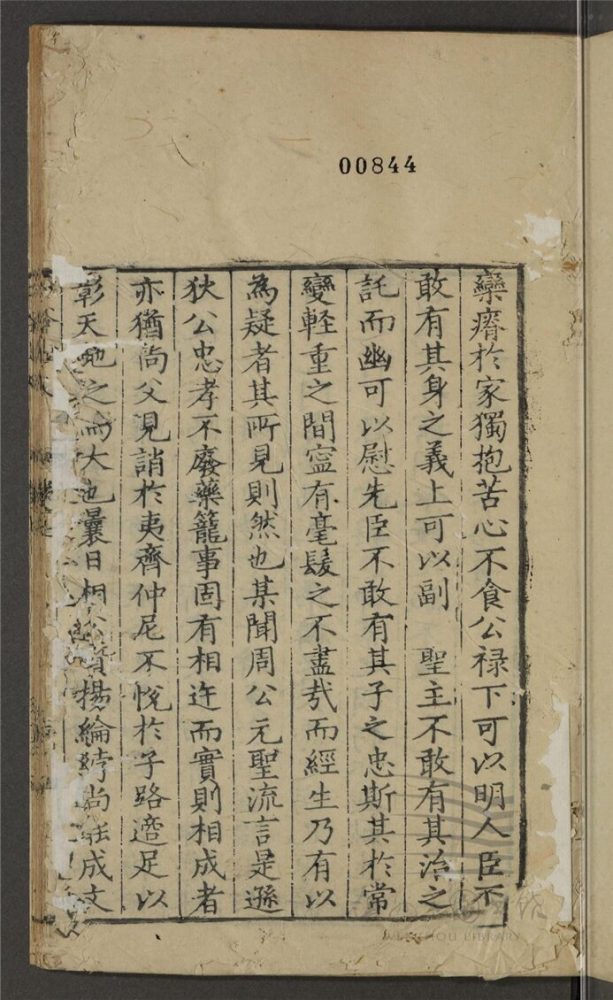 00844
欒瘠於家獨抱苦心不食公禄下可以明人臣不
敢有其身之義上可以副　聖主不敢有其治之
託而幽可以慰先臣不敢有其子之忠斯其於常
變軽重之間寍有毫髮之不盡㢤而經生乃有以
為疑者其所見則然也某聞周公元聖流言是遜
狄公忠孝不廢藥籠事固有相迕而實則相成者
亦猶尚父見誚於夷齊仲尼不悅於子路適足以
彰天地之大也曩日相揚綸綍尚成文
LIBRARY